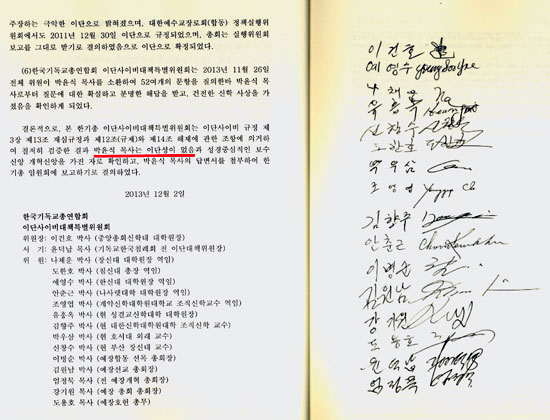 주장하는 극악한 이단으로 밝혀졌으며, 대한예수교장로회(합동) 정책실행위
원회에서 2011년 12월 30일 이단으로 규정되었으며, 총회는 실행위원회
보고를 그대로 받기로 결의하였음으로 이단으로 확정되었다.
(6)한국기독교총연합회 이단사이비대책특별위원회는 2013년 11월 26일
전체 위원이 박윤식 목사를 소환하여 52여개의 문항을 질의한바 박윤식 목
사로부터 질문에 대한 확실하고 분명한 해답을 받고, 건전한 신학 사상을 가
졌음을 확인하게 되었다.
결론적으로, 본 한기총 이단사이비대책특별위원회는 이단사이비 규정 제
3장 제13조 재심규정과 제12조(규제)와 제14조 해제에 관한 조항에 의거하
여 철저히 검증한 결과 박윤식 목사는 이단성이 없음과 성경중심적인 보수
신앙 개혁신앙을 가진 자로 확인하고, 박윤식 목사의 답변서를 첨부하여 한
기총 임원회에 보고하기로 결의하였다.
2013년 12월 2일
한국기독교총연합회
이단사이비대책특별위원회
위원장: 이건호 박사 (중앙총회신학대 대학원장)
서 기: 윤덕남 목사 (기독교한국침례회 전 이단대책위원장)
위 원: 나채운 박사 (장신대 대학원장 역임)
도한호 박사 (침신대 총장 역임)
예영수 박사 (한신대 대학원장 역임)
안춘근 박사 (나사렛대학 대학원장 역임)
조영엽 박사 (계약신학대학원대학교 조직신학교수 역임)
유흥옥 박사 (현 성결교신학대학 대학원장)
김향주 박사 (현 대한신학대학원대학 조직신학 교수)
박우삼 박사 (현 호서대 외래 교수)
신창수 박사 (현 부산 장신대 교수)
이병순 목사 (예장합동 선목 총회장)
김원남 목사 (예장선교 총회장)
엄정묵 목사 (전 예장개혁 총회장)
강기원 목사 (예장 총회 총회장)
도용호 목사 (예장호헌 총무)
이건호
예영수
나채운
유흥옥
신창수
도한호
박우삼
조영엽
김향주
안춘근
이병순
김원남
강기원
도용호
윤덕남
엄정묵